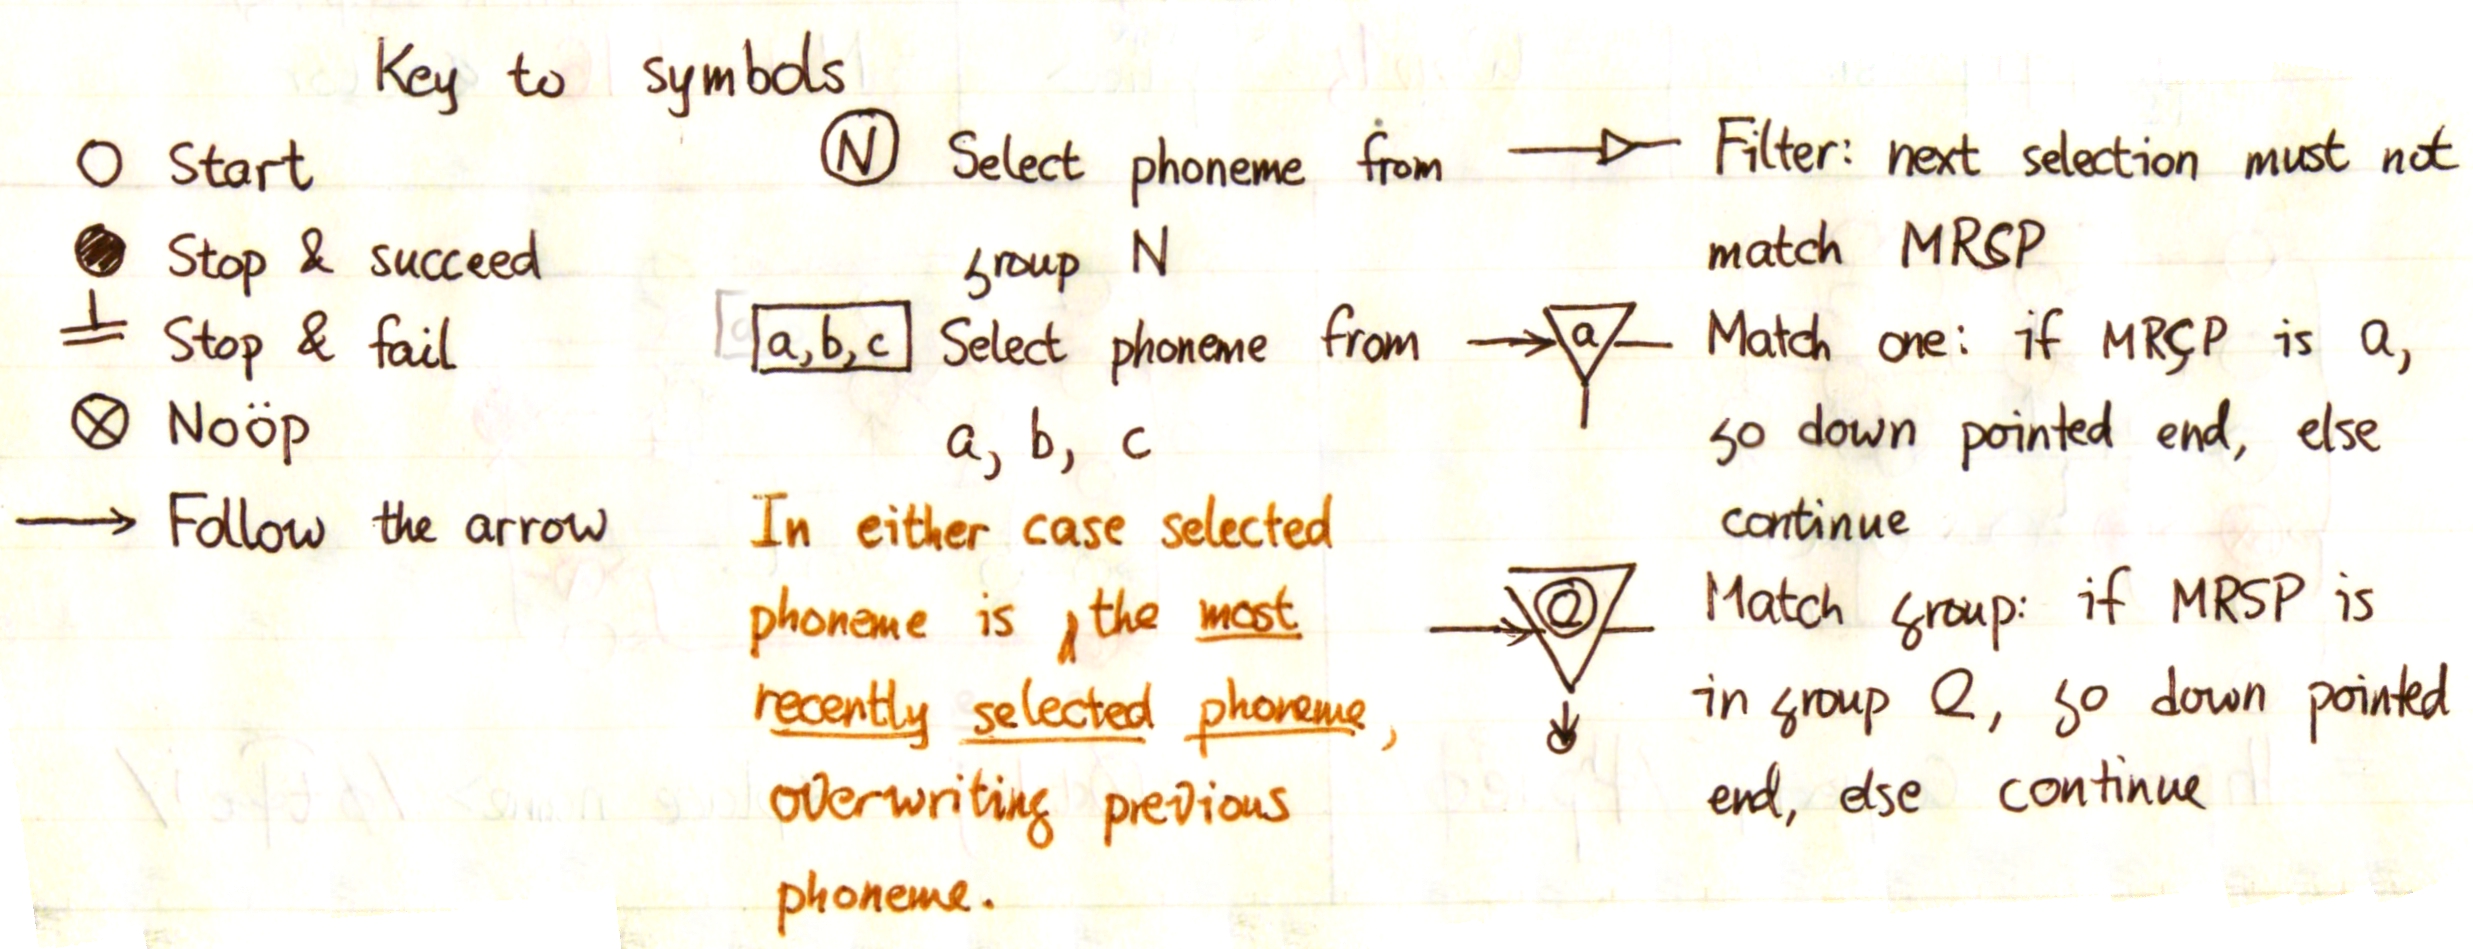 Key to symbols
Start
Stop & succeed
Stop & fail
Noöp
Follow the arrow
N Select phoneme from
group N
a, b, c Select phoneme from
a, b, c
In either case selected
phoneme is the most
recently selected phoneme,
overwriting previous
phoneme.
Filter: next selection must not
match MRSP
a Match one: if MRSP is a,
go down pointed end, else
continue
Q Match group: if MRSP is
in group Q, go down pointed
end, else continue